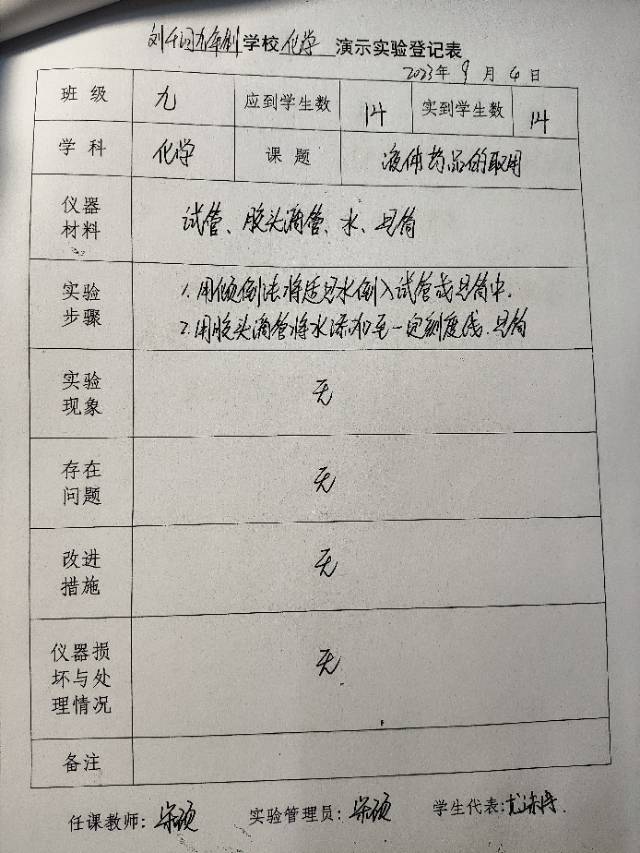 刘千同九年制学校 化学 演示实验登记表
2023年 9 月 4 日
班 级 九 应到学生数 14 实到学生数 14
学 科 化学 课 题 液体药品的取用
仪器材料 试管、胶头滴管、水、量筒
实验步骤 1.用倾倒法将适量水倒入试管或量筒中.
2.用胶头滴管将水添加至一定刻度线.量筒
实验现象 无
存在问题 无
改进措施 无
仪器损坏与处理情况 无
备注
任课教师: 宋硕 实验管理员: 宋硕 学生代表: